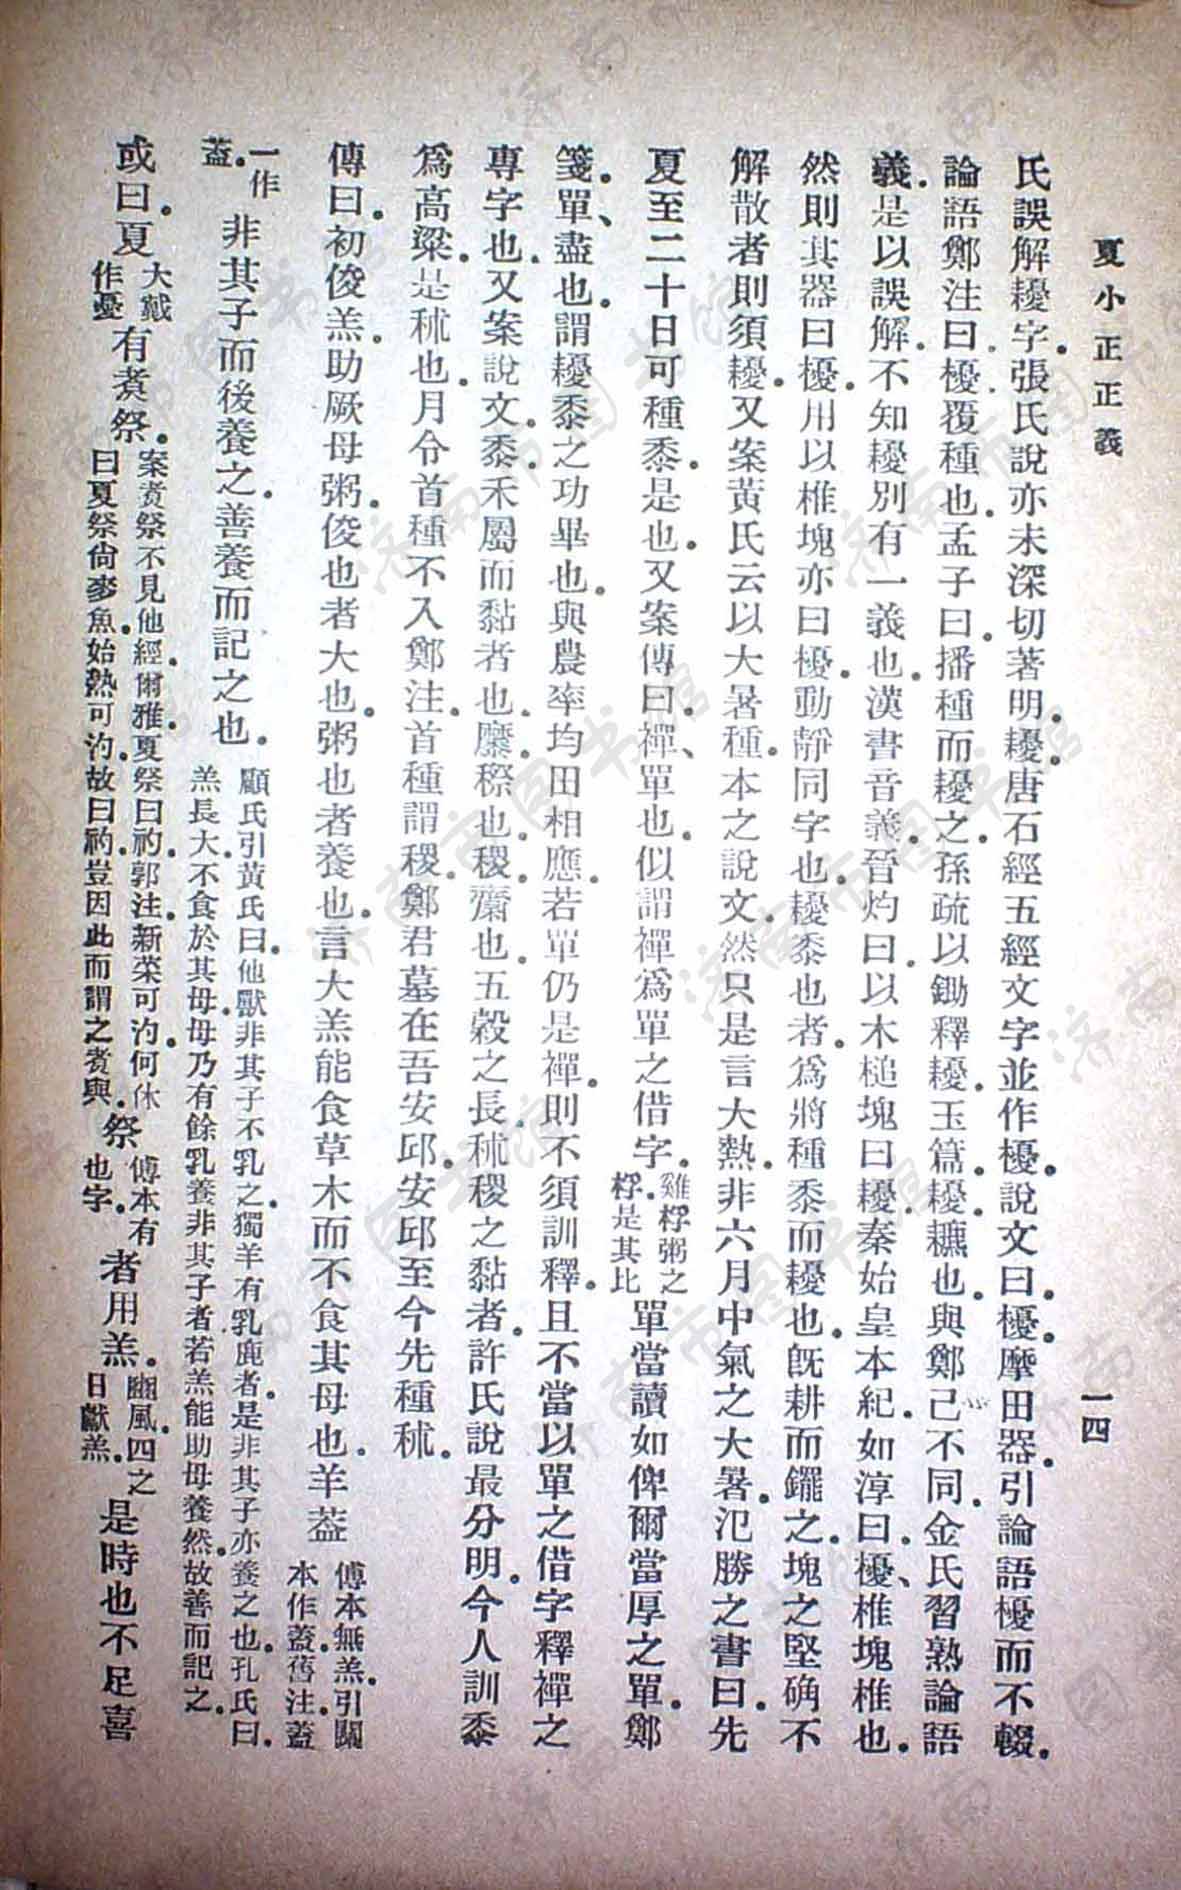 夏小正正義
一四
氏誤解耰字。張氏說亦未深切著明。耰。唐石經五經文字並作櫌。說文曰。櫌。摩田器。引論語櫌而不輟。
論語鄭注曰。櫌。覆種也。孟子曰。播種而耰之。孫疏以鋤釋耰。玉篇。耰。穮也。與鄭己不同。金氏習熟論語
義。是以誤解。不知耰別有一義也。漢書音義。晉灼曰。以木椎塊曰耰。秦始皇本紀。如淳曰。櫌、椎塊椎也。
然則其器曰櫌。用以椎塊亦曰櫌。動靜同字也。耰黍也者。爲將種黍而耰也。旣耕而鑼之。塊之堅确不
解散者則須耰。又案黃氏云以大暑種。本之說文。然只是言大熱。非六月中氣之大暑。氾勝之書曰。先
夏至二十日可種黍。是也。又案傳曰。禪、單也。似謂禪爲單之借字。
雞桴粥之
桴。是其比
單當讀如俾爾當厚之單。鄭
箋。單、盡也。謂耰黍之功畢也。與農率均田相應。若單仍是禪。則不須訓釋。且不當以單之借字釋禪之
專字也。又案說文。黍。禾屬而黏者也。穈。穄也。稷。齋也。五穀之長。秫。稷之黏者。許氏說最分明。今人訓黍
爲高粱。是秫也。月令首種不入。鄭注。首種謂稷。鄭君墓在吾安邱。安邱至今先種秫。
傳曰。初俊羔。助厥母粥。俊也者。大也。粥也者。養也。言大羔能食草木而不食其母也。羊葢
傳本無羔。引關
本作蓋。舊注。蓋
一作
葢。
非其子而後養之。善養而記之也。
顧氏引黃氏曰。他獸非其子不乳之。獨羊有乳鹿者。是非其子亦養之也。孔氏曰。
羔長大。不食於其母。母乃有餘乳養非其子者。若羔能助母養然。故善而記之。
或曰。夏
大戴
作憂
有煑祭。
案煑祭不見他經。爾雅。夏祭曰礿。郭注。新菜可汋。何休
曰。夏祭尙麥魚。始熟可汋。故曰礿。豈因此而謂之煑與。
祭
傅本有
也字。
者用羔。
豳風。四之
日獻羔。
是時也不足喜